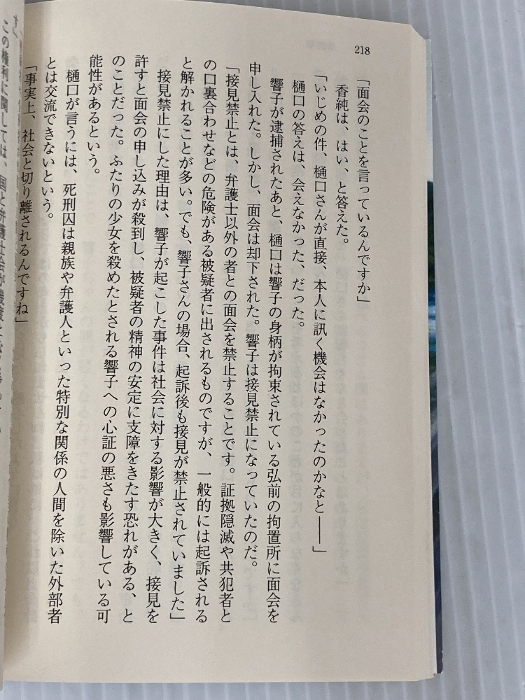 218
「面会のことを言っているんですか」
香純は、はい、と答えた。
「いじめの件、樋口さんが直接、本人に訊く機会はなかったのかなと――」
樋口の答えは、会えなかった、だった。
響子が逮捕されたあと、樋口は響子の身柄が拘束されている弘前の拘置所に面会を
申し入れた。しかし、面会は却下された。響子は接見禁止になっていたのだ。
「接見禁止とは、弁護士以外の者との面会を禁止することです。証拠隠滅や共犯者と
の口裏合わせなどの危険がある被疑者に出されるものですが、一般的には起訴される
と解かれることが多い。でも、響子さんの場合、起訴後も接見が禁止されていました」
接見禁止にした理由は、響子が起こした事件は社会に対する影響が大きく、接見を
許すと面会の申し込みが殺到し、被疑者の精神の安定に支障をきたす恐れがある、と
のことだった。ふたりの少女を殺めたとされる響子への心証の悪さも影響している可
能性があるという。
樋口が言うには、死刑囚は親族や弁護人といった特別な関係の人間を除いた外部者
とは交流できないという。
「事実上、社会と切り離されるんですね」
この権利に関しては、国と弁護士会が